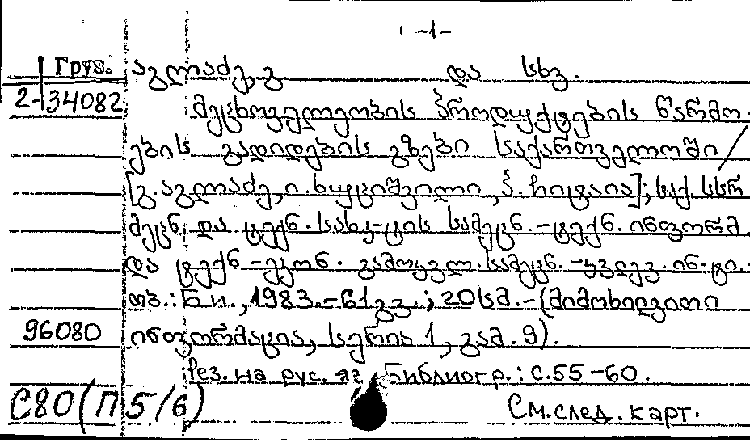 -1-
Груз. აგლაძე, გ. და სხვ.
2-34082 მეცხოველეობის პროდუქტების წარმო-
ების გადიდების გზები საქართველოში /
[გ. აგლაძე, ი. ხუციშვილი, პ. ჩიტაია]; საქ. სსრ
მეცნ. და ტექნ. სახ. კ-ტის სამეცნ.-ტექნ. ინფორმ.
და ტექნ.-ეკონ. გამოკვლ. სამეცნ.-კვლევ. ინ-ტი.-
თბ.: Б.и., 1983.-61 გვ.; 20 სმ.-(მიმოხილვითი
96080 ინფორმაცია, სერია 1, გამ. 9).
Рез. на рус. яз. Библиогр.: с.55-60.
С80(П5/6) См.след. карт.